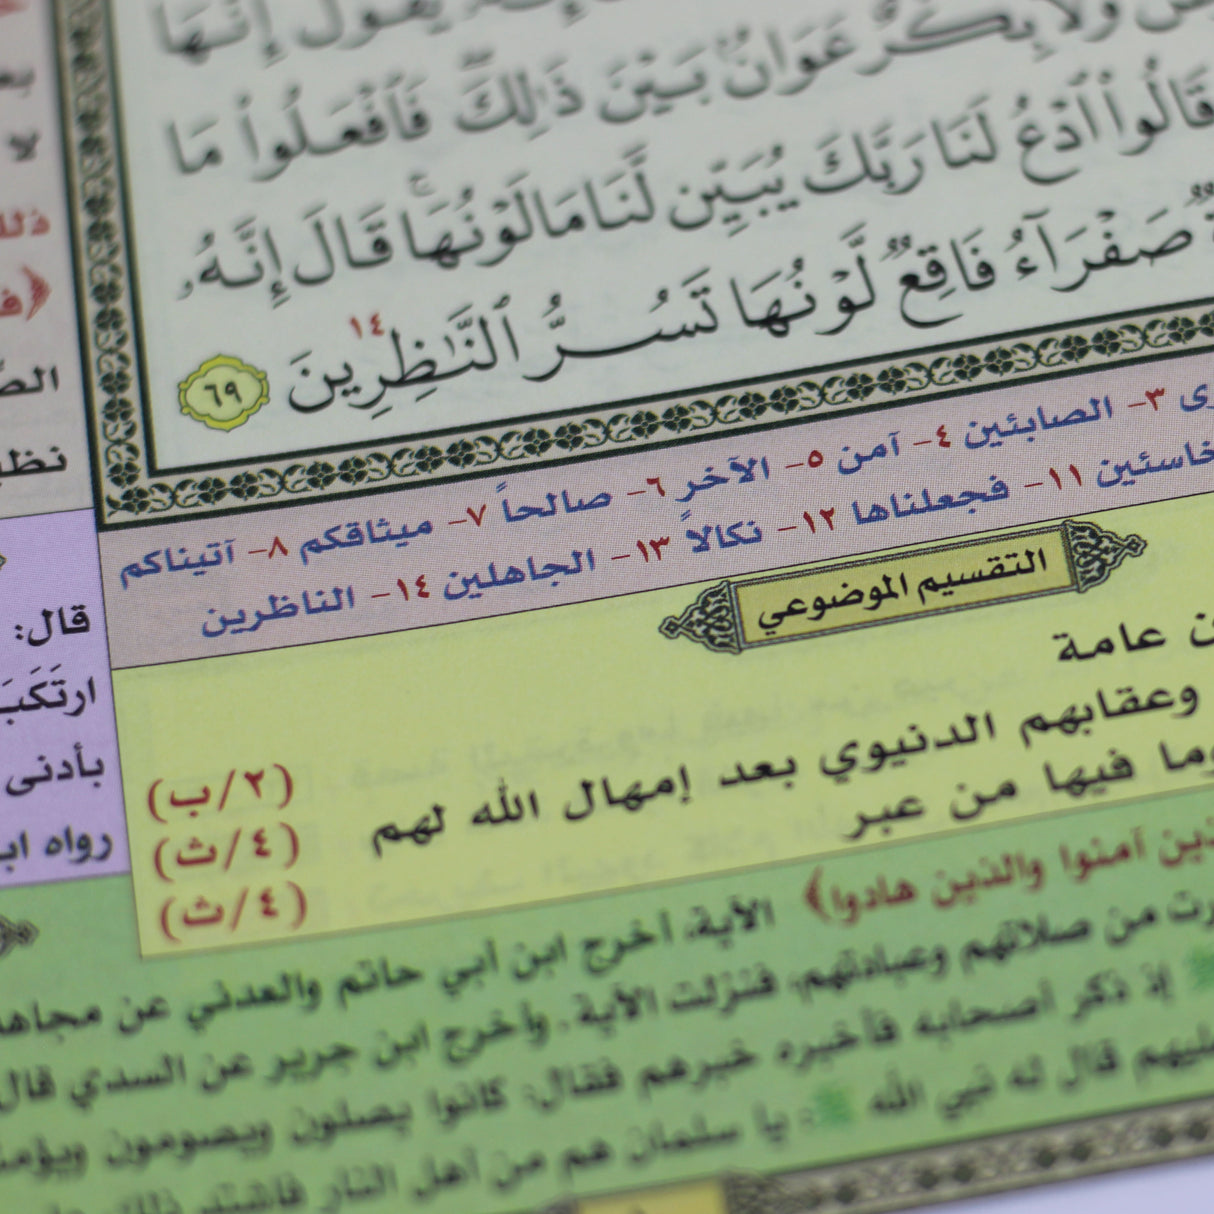 يَقُولُ إِنَّهَا
وَلَا بِكْرٌ عَوَانٌۢ بَيْنَ ذَٰلِكَ فَٱفْعَلُوا۟ مَا
قَالُوا۟ ٱدْعُ لَنَا رَبَّكَ يُبَيِّن لَّنَا مَا لَوْنُهَا ۚ قَالَ إِنَّهُۥ
صَفْرَآءُ فَاقِعٌ لَّوْنُهَا تَسُرُّ ٱلنَّـٰظِرِينَ ١٤ ٦٩
٣- الصابئين ٤- آمن ٥- الآخر ٦- صالحاً ٧- ميثاقكم ٨- آتيناكم
خاسئين ١١- فجعلناها ١٢- نكالاً ١٣- الجاهلين ١٤- الناظرين
التقسيم الموضوعي
عامة (٢/ب)
وعقابهم الدنيوي بعد إمهال الله لهم (٤/ث)
وما فيها من عبر (٤/ث)
آمنوا والذين هادوا﴾ الآية، أخرج ابن أبي حاتم والعدني عن
من صلاتهم وعبادتهم، فنزلت الآية. وأخرج ابن جرير عن السدي قال
إذ ذكر أصحابه فأخبره خبرهم فقال: كانوا يصلون ويصومون
قال له نبي الله ﷺ: يا سلمان هم من أهل النار فاشتد ذلك
لا
الص
قال:
بأدنى
رواه